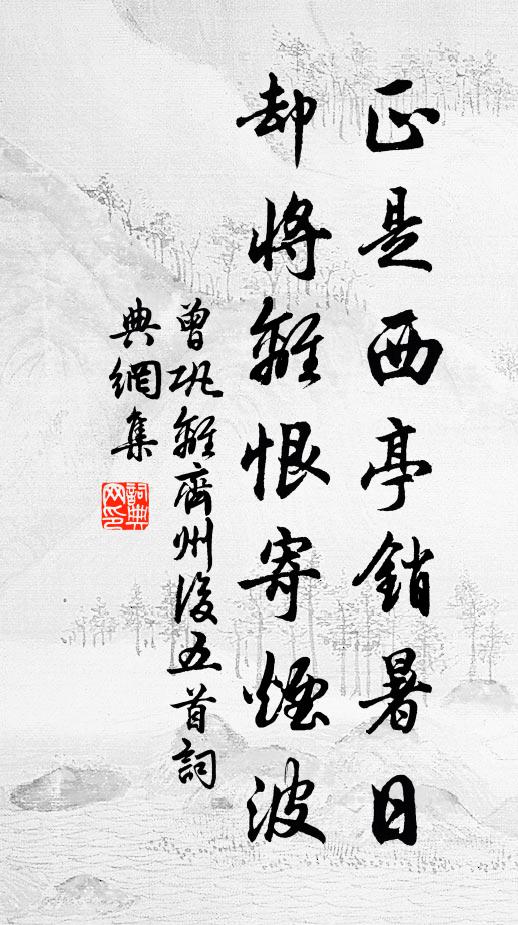 正是西亭銷暑日
却將離恨寄煙波
曾巩離齊州後五首詞
典網集
詞典
网印